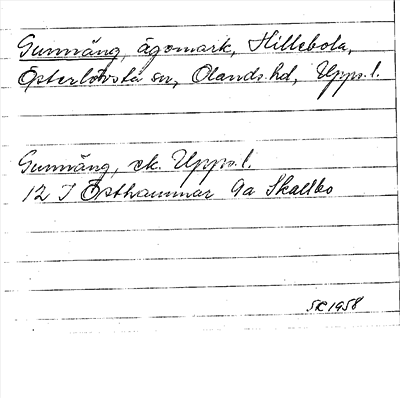 Gunnäng, ägomark, Hillebola,
Österlövsta sn, Olands hd, Upps. l.
Gunnäng, ek. Upps. l.
12 I Östhammar 9a Skallbo
SK 1958